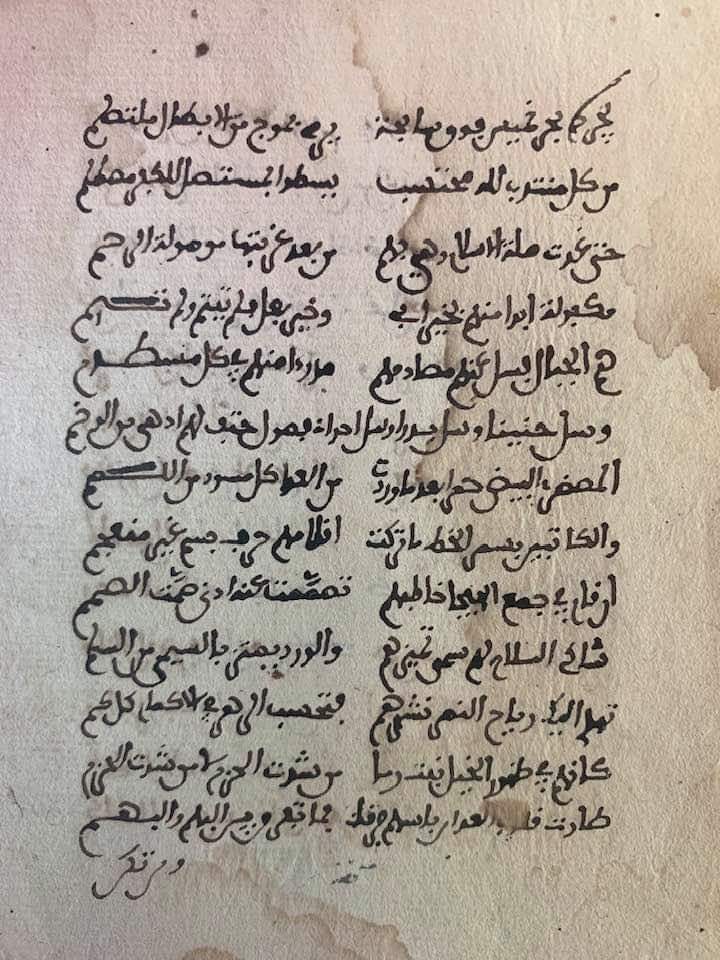 يجر بحر خميس فوق سابحة يرمي بموج من الابطال ملتطم
من كل منتدب لله محتسب يسطوا بمستاصل للكفر مصطلم
حتى غدت ملة الاسلام وهي بهم من بعد غربتها موصولة الرحم
مكفولة ابدا منهم بخير اب وخير بعل فلم تيتم ولم تئم
هم الجبال فسل عنهم مصادمهم ماذا راى منهم في كل مصطدم
وسل حنينا وسل بدرا وسل احدا فصول حتف لهم ادهى من الوخم
المصدر البيض حمرا بعد ما وردت من العدا كل مسود من اللمم
والكاتبين بسمر الخط ما تركت اقلامهم حرف جسم غير منعجم
ان قام في جمع الهيجا خاطبهم تصاممت عنه اذني صمة الصمم
شاكي السلاح لهم سمى تميزهم والورد يمتاز بالسيمى من السلم
تهدي اليك رياح النصر نشرهم فتحسب الزهر في الاكمام كل كم
كانهم في ظهور الخيل نبت ربا من شدت الحزم لا من شدت الحزم
طارت قلوب العدا من باسهم فرقا فما تفرق بين البهم والبهم
ومن تكن